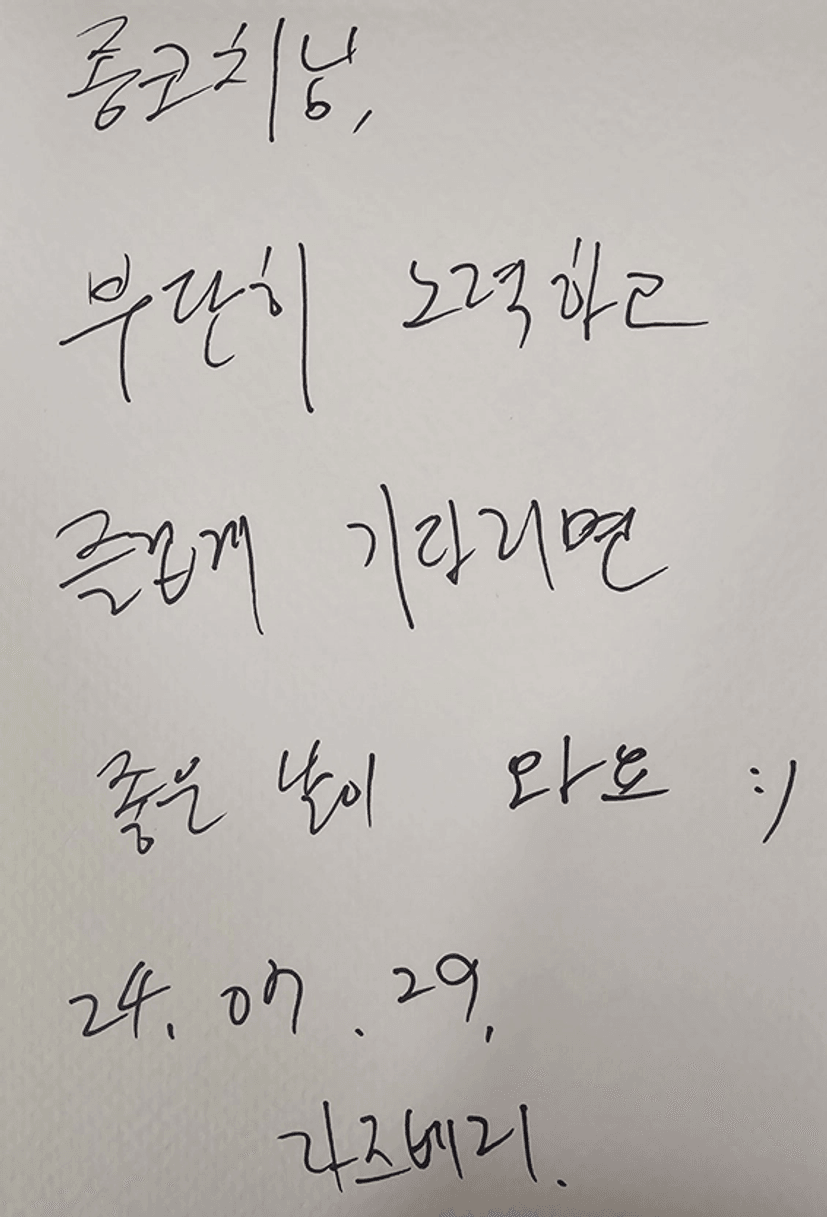 종코치님,
부단히 노력하고
즐겁게 기다리면
좋은 날이 와요 :)
24. 07. 29.
라즈베리.